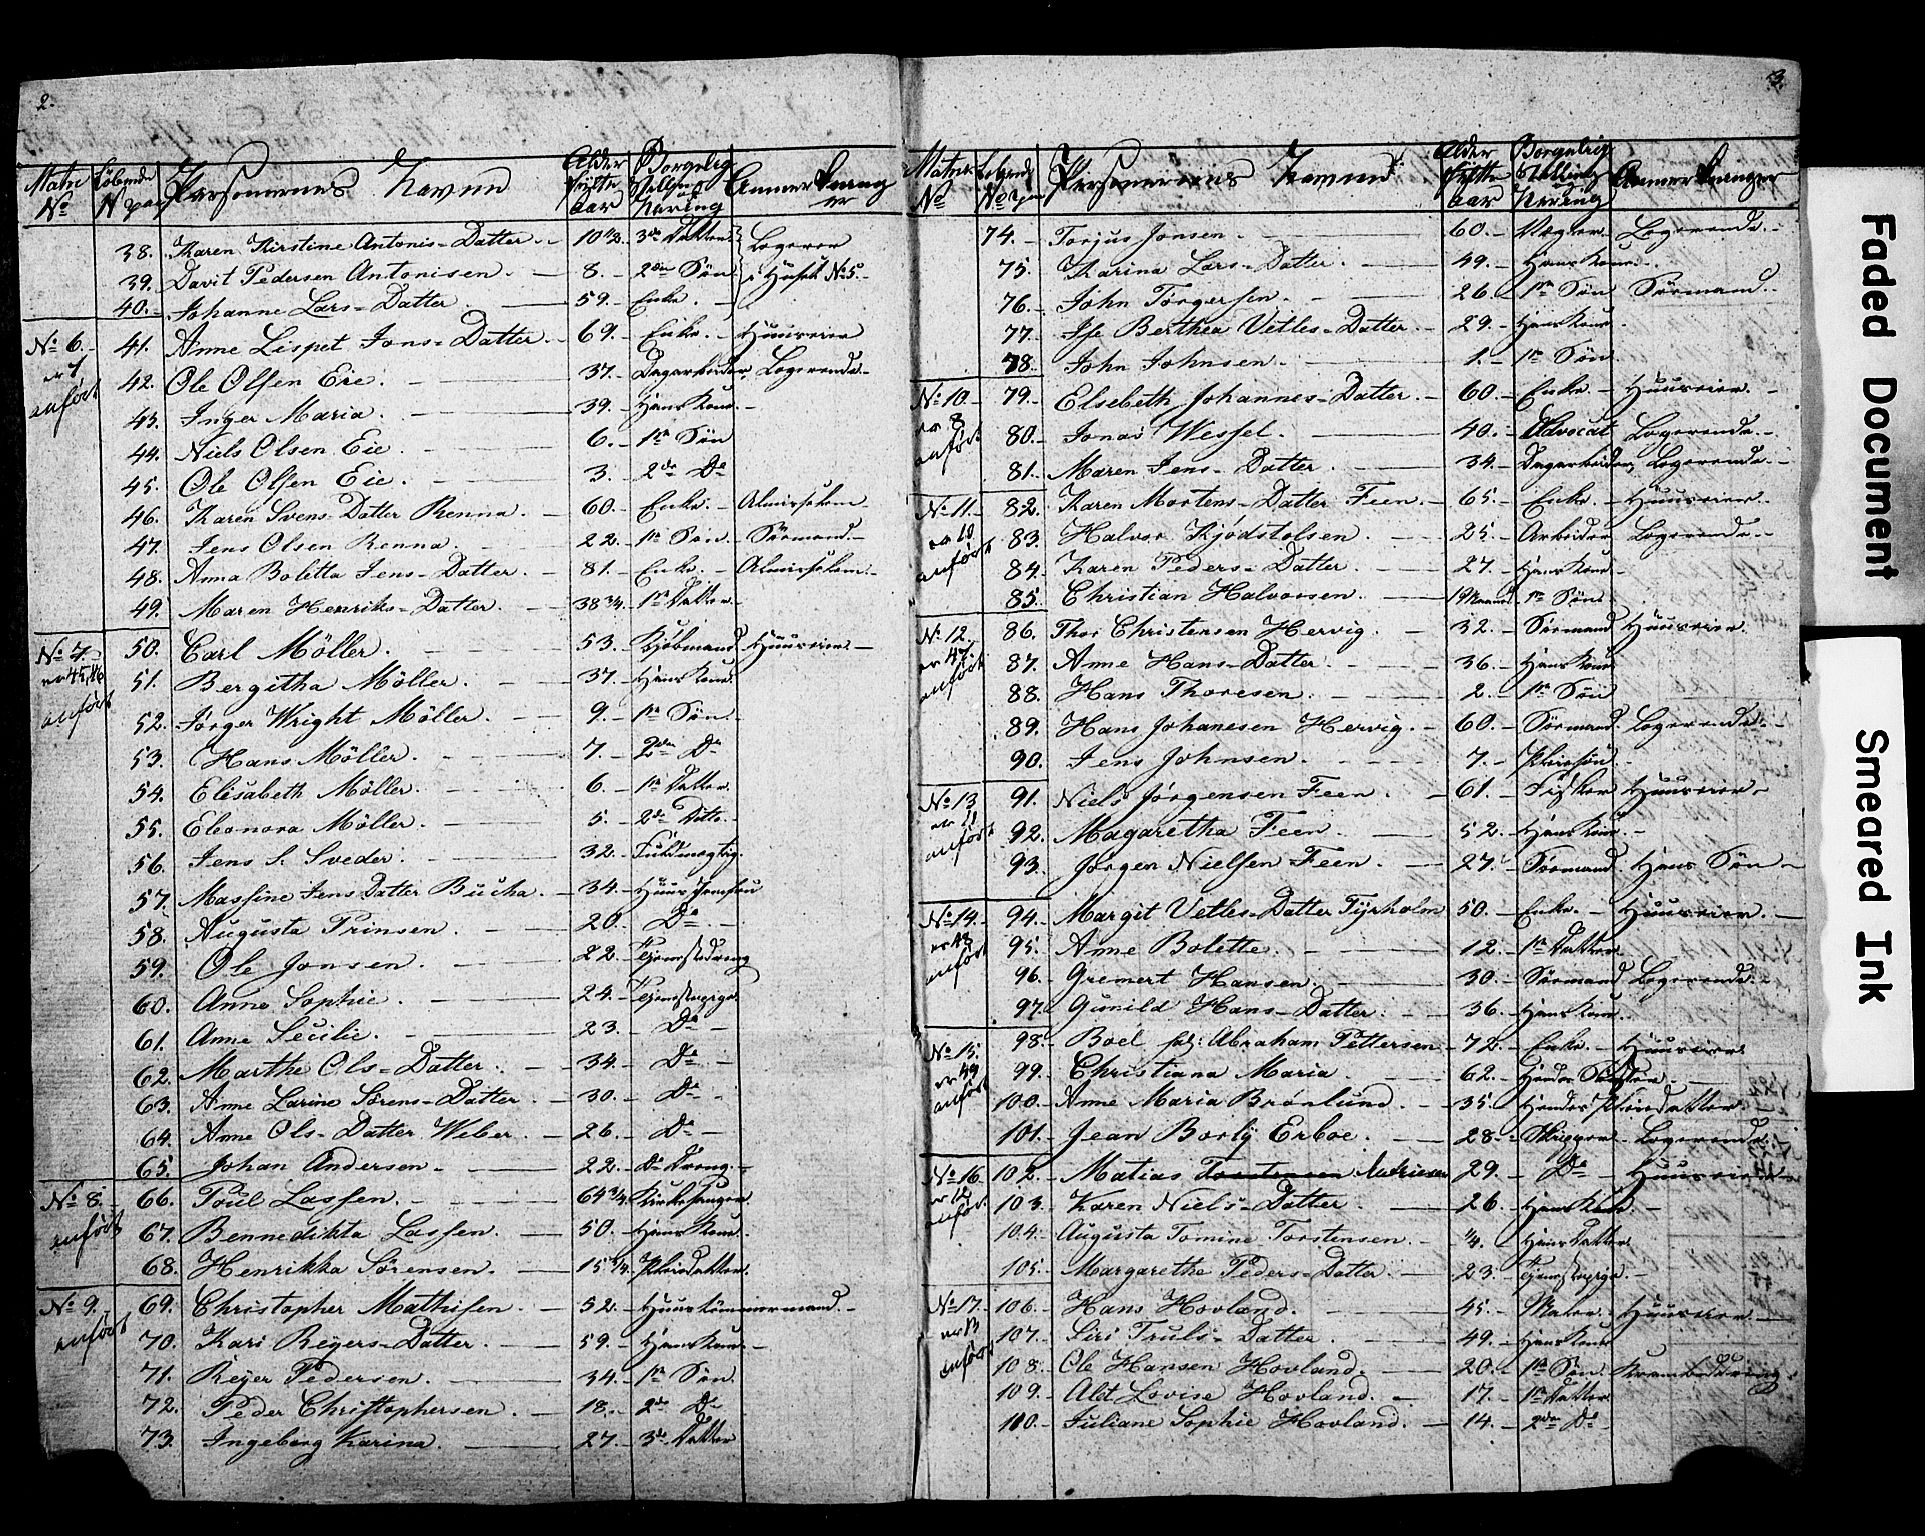 2.
Matr No Løbende No Personernes Navne Alder fylte aar Borgelig Stelling Næring Anmerkninger
38. Karen Kirstine Antonis-Datter. 10 1/2. 3de Datter Logerer
39. Davit Pedersen Antonisen. 8. 2den Søn i Huset No 5.
40. Johanne Lars-Datter. 59. Enke.
No 6. er 7 anført 41. Anne Lispet Jons-Datter. 69. Enke. Huuseier
42. Ole Olsen Eie. 37. Dagarbeider Logerende
43. Inger Maria. 39. Hans Kone.
44. Niels Olsen Eie. 6. 1te Søn
45. Ole Olsen Eie. 3. 2de Do
46. Karen Svens-Datter Renna. 60. Enke. Almisselem
47. Jens Olsen Renna. 22. 1te Søn. Sørmand.
48. Anna Boletta Jens-Datter. 81. Enke. Almisselem.
49. Maren Henriks-Datter. 38 3/4. 1te Datter
No 7. er 45,46 anført 50. Carl Möller. 53. Kjøbmand Huuseier
51. Bergitha Möller. 37. Hans Kone.
52. Jørger Wright Möller. 9. 1te Søn.
53. Hans Möller. 7. 2den Do
54. Elisabeth Möller. 6. 1te Datter
55. Eleonora Möller. 5. 2de Datte.
56. Jens S. Sveder. 32. Fuldmægtig.
57. Massine Jens Datter Bucha. 34. Huus Jomfru
58. Augusta Prinsen. 20. Do
59. Ole Jonsen 22. Tjenestedreng
60. Anne Sophie. 24. Tjenestepige
61. Anne Secilie. 23. Do
62. Marthe Ols-Datter. 34. Do
63. Anne Larine Sørens-Datter. 30. Do
64. Anne Ols-Datter Weber. 26. Do
65. Johan Andersen. 22. Do Dreng.
No 8. anført 66. Poul Lassen. 64 3/4. Kirkesanger
67. Bennedikta Lassen. 50. Hans Kone.
68. Henrikka Sørensen. 15 3/4. Pleiedatter.
No 9. anført 69. Christopher Mathisen. 52. Huustömmermand.
70. Kari Reyers-Datter. 59. Hans Kone.
71. Reyer Pedersen. 34. 1te Søn.
72. Peder Christophersen. 18. 2de Do
73. Ingeborg Karina. 27. 3de Datter
3.
Matrik No Løbende No Personernes Navne Alder fylte aar Borgelig Stelling Næring Anmerkninger
74. Torjus Jonsen. 60. Vægter. Logerende.
75. Karina Lars-Datter. 49. Hans Kone.
76. John Torgersen. 26. 1te Søn Sørmand.
77. Ise Berthea Vetles-Datter. 29. Hans Kone.
78. John Johnsen. 1. 1te Søn
No 10. er 8 anført 79. Elsebeth Johannes-Datter. 60. Enke. Huuseier.
80. Jonas Wessel. 40. Advocat Logerende.
81. Maren Jens-Datter. 34. Dagarbeider Logerende.
No 11. er 10 anført 82. Karen Mortens-Datter Feen. 65. Enke. Huuseier.
83. Halvor Kjødstolsen. 25. Arbeider Logerende.
84. Karen Peders-Datter. 27. Hans Kone
85. Christian Halvorsen. 1te Søn.
No 12. er 47. anført 86. Thor Christensen Hervig. 32. Sørmand Huuseier.
87. Anne Hans-Datter. 36. Hans Kone
88. Hans Thoresen. 2. 1te Søn
89. Hans Johanesen Hervig. 60. Sørmand Logerende.
90. Jens Johnsen. 7. Pleiesøn
No 13 er 11 anført 91. Niels Jørgensen Feen. 61. Fisker Huuseier.
92. Magaretha Feen. 52. Hans Kone.
93. Jørgen Nielsen Feen. 27. Sørmand. Hans Søn
No 14. er 48 anført 94. Margit Vetles-Datter Tyrholm 50. Enke. Huuseier.
95. Anne Bolette. 12. 1te Datter
96. Gremert Hansen. 30. Sørmand Logerende.
97. Gunild Hans-Datter. 36. Hans Kone
No 15. er 49 anført 98. Boel sal: Abraham Pettersen 72. Enke. Huuseier
99. Christiana Maria. 62. Hendes Søster.
100. Anne Maria Brønlund. 35. Hendes Pleiedatter
101. Jean Borly Erboe. 28. Skipper Logerende
No 16 er 12 anført. 102. Matias Torstensen 29. Do Huuseier
103. Karen Niels-Datter. 26. Hans Kone
104. Augusta Tomine Torstensen. 1/4. Hans Datter
105. Margarethe Peders-Datter. 23. Tjenestepige.
No 17. er 13 anført 106. Hans Hovland. 45. Maler. Huuseier.
107. Siri Truls-Datter. 49. Hans Kone
108. Ole Hansen Hovland. 20. 1te Søn. Krambodreng.
109. Alt Lovise Hovland. 17. 1te Datter
110. Juliane Sophie Hovland. 14. 2den Do
Faded Document
Smeared Ink